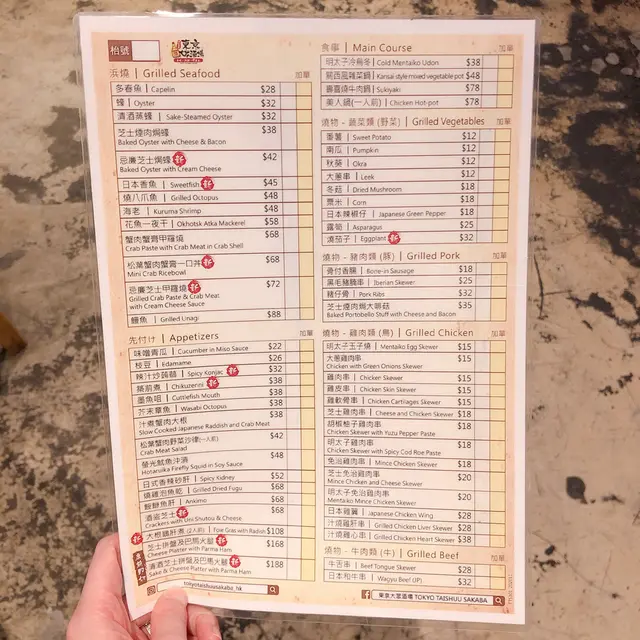 枱號
東京
大眾酒場
浜燒 | Grilled Seafood 加單
多春魚 | Capelin $28
蠔 | Oyster $32
清酒蒸蠔 | Sake-Steamed Oyster $32
芝士煙肉焗蠔 $38
Baked Oyster with Cheese & Bacon
忌廉芝士焗蠔 $42
Baked Oyster with Cream Cheese
日本香魚 | Sweetfish $45
燒八爪魚 | Grilled Octopus $48
海老 | Kuruma Shrimp $48
花魚一夜干 | Okhotsk Atka Mackerel $58
蟹肉蟹膏甲羅燒 $68
Crab Paste with Crab Meat in Crab Shell
松葉蟹肉蟹膏一口丼 $68
Mini Crab Ricebowl
忌廉芝士甲羅燒 $72
Grilled Crab Paste & Crab Meat
with Cream Cheese in Crab Shell
鰻魚 | Grilled Unagi $88
先付け | Appetizers 加單
味噌青瓜 | Cucumber in Miso Sauce $22
枝豆 | Edamame $26
辣汁炒蒟蒻 | Spicy Konjac $32
築前煮 | Chikuzenni $38
墨魚咀 | Cuttlefish Mouth $38
芥末章魚 | Wasabi Octopus $38
汁煮蟹肉大根 $38
Slow Cooked Japanese Raddish and Crab Meat
松葉蟹肉野菜沙律(一人前) $42
Crab Meat Salad
螢光魷魚沖漬 $48
Hotaruika Firefly Squid in Soy Sauce
日式香辣砂肝 | Spicy Kidney $52
燒雞泡魚乾 | Grilled Dried Fugu $68
鮟鱇魚肝 | Ankimo $68
酒盜芝士 $68
Crackers with Uni Shutou & Cheese
大根鵝肝煮 (2人前) | Foie Gras with Radish $108
芝士拼盤及巴馬火腿 $168
Cheese Platter with Parma Ham
清酒芝士拼盤及巴馬火腿 $188
Sake & Cheese Platter with Parma Ham
tokyotaishuusakaba_hk
食事 | Main Course 加單
明太子冷烏冬 | Cold Mentaiko Udon $38
關西風雜菜鍋 | Kansai style mixed vegetable pot $48
壽喜燒牛肉鍋 | Sukiyaki $78
美人鍋(一人前) | Chicken Hot-pot $78
燒物 - 蔬菜類 (野菜) | Grilled Vegetables 加單
番薯 | Sweet Potato $12
南瓜 | Pumpkin $12
秋葵 | Okra $12
大蔥串 | Leek $12
冬菇 | Dried Mushroom $18
粟米 | Corn $18
日本辣椒仔 | Japanese Green Pepper $18
露筍 | Asparagus $25
燒茄子 | Eggplant $32
燒物 - 豬肉類 (豚) | Grilled Pork 加單
骨付香腸 | Bone-in Sausage $18
黑毛豬腩串 | Iberian Skewer $25
豬仔骨 | Pork Ribs $32
芝士煙肉焗大啡菇 $35
Baked Portobello Stuff with Cheese and Bacon
燒物 - 雞肉類 (鳥) | Grilled Chicken 加單
明太子玉子燒 | Mentaiko Egg Skewer $15
大蔥雞肉串 $15
Chicken with Green Onions Skewer
雞肉串 | Chicken Skewer $15
雞皮串 | Chicken Skin Skewer $15
雞軟骨串 | Chicken Cartliages Skewer $15
芝士雞肉串 | Cheese and Chicken Skewer $18
胡椒柚子雞肉串 $18
Chicken Skewer with Yuzu Pepper Paste
明太子雞肉串 $18
Chicken Skewer with Spicy Cod Roe Paste
免治雞肉串 | Mince Chicken Skewer $18
芝士免治雞肉串 $20
Mince Chicken and Cheese Skewer
明太子免治雞肉串 $20
Mentaiko Mince Chicken Skewer
日本雞翼 | Japanese Chicken Wing $28
汁燒雞肝串 | Grilled Chicken Liver Skewer $28
汁燒雞心串 | Grilled Chicken Heart Skewer $38
燒物 - 牛肉類 (牛) | Grilled Beef 加單
牛舌串 | Beef Tongue Skewer $28
日本和牛串 | Wagyu Beef (JP) $32
東京大眾酒場 TOKYO TAISHUU SAKABA